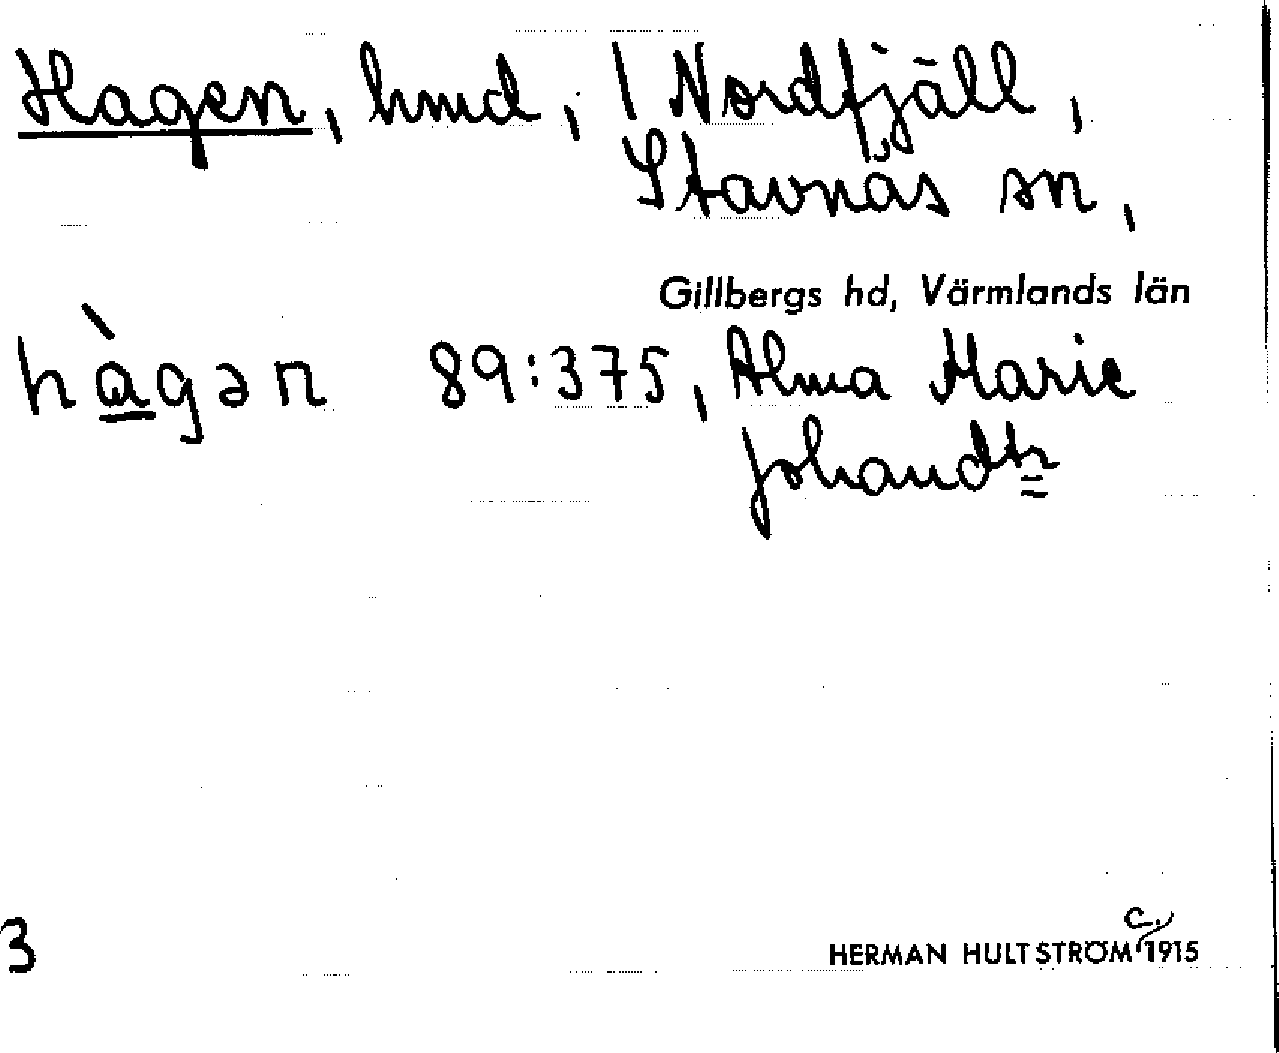 Hagen, hmd, i Nordfjäll,
Stavnäs sn,
Gillbergs hd, Värmlands län
hàgən 89:375, Alma Marie
Johandtr
3
HERMAN HULTSTRÖM c. 1915